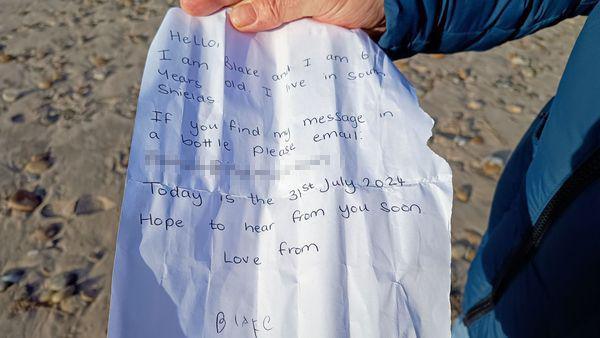 Hello,
I am Blake and I am 6
years old. I live in South
Shields.
If you find my message in
a bottle please email:
Today is the 31st July 2024
Hope to hear from you soon
Love from
BlAKE